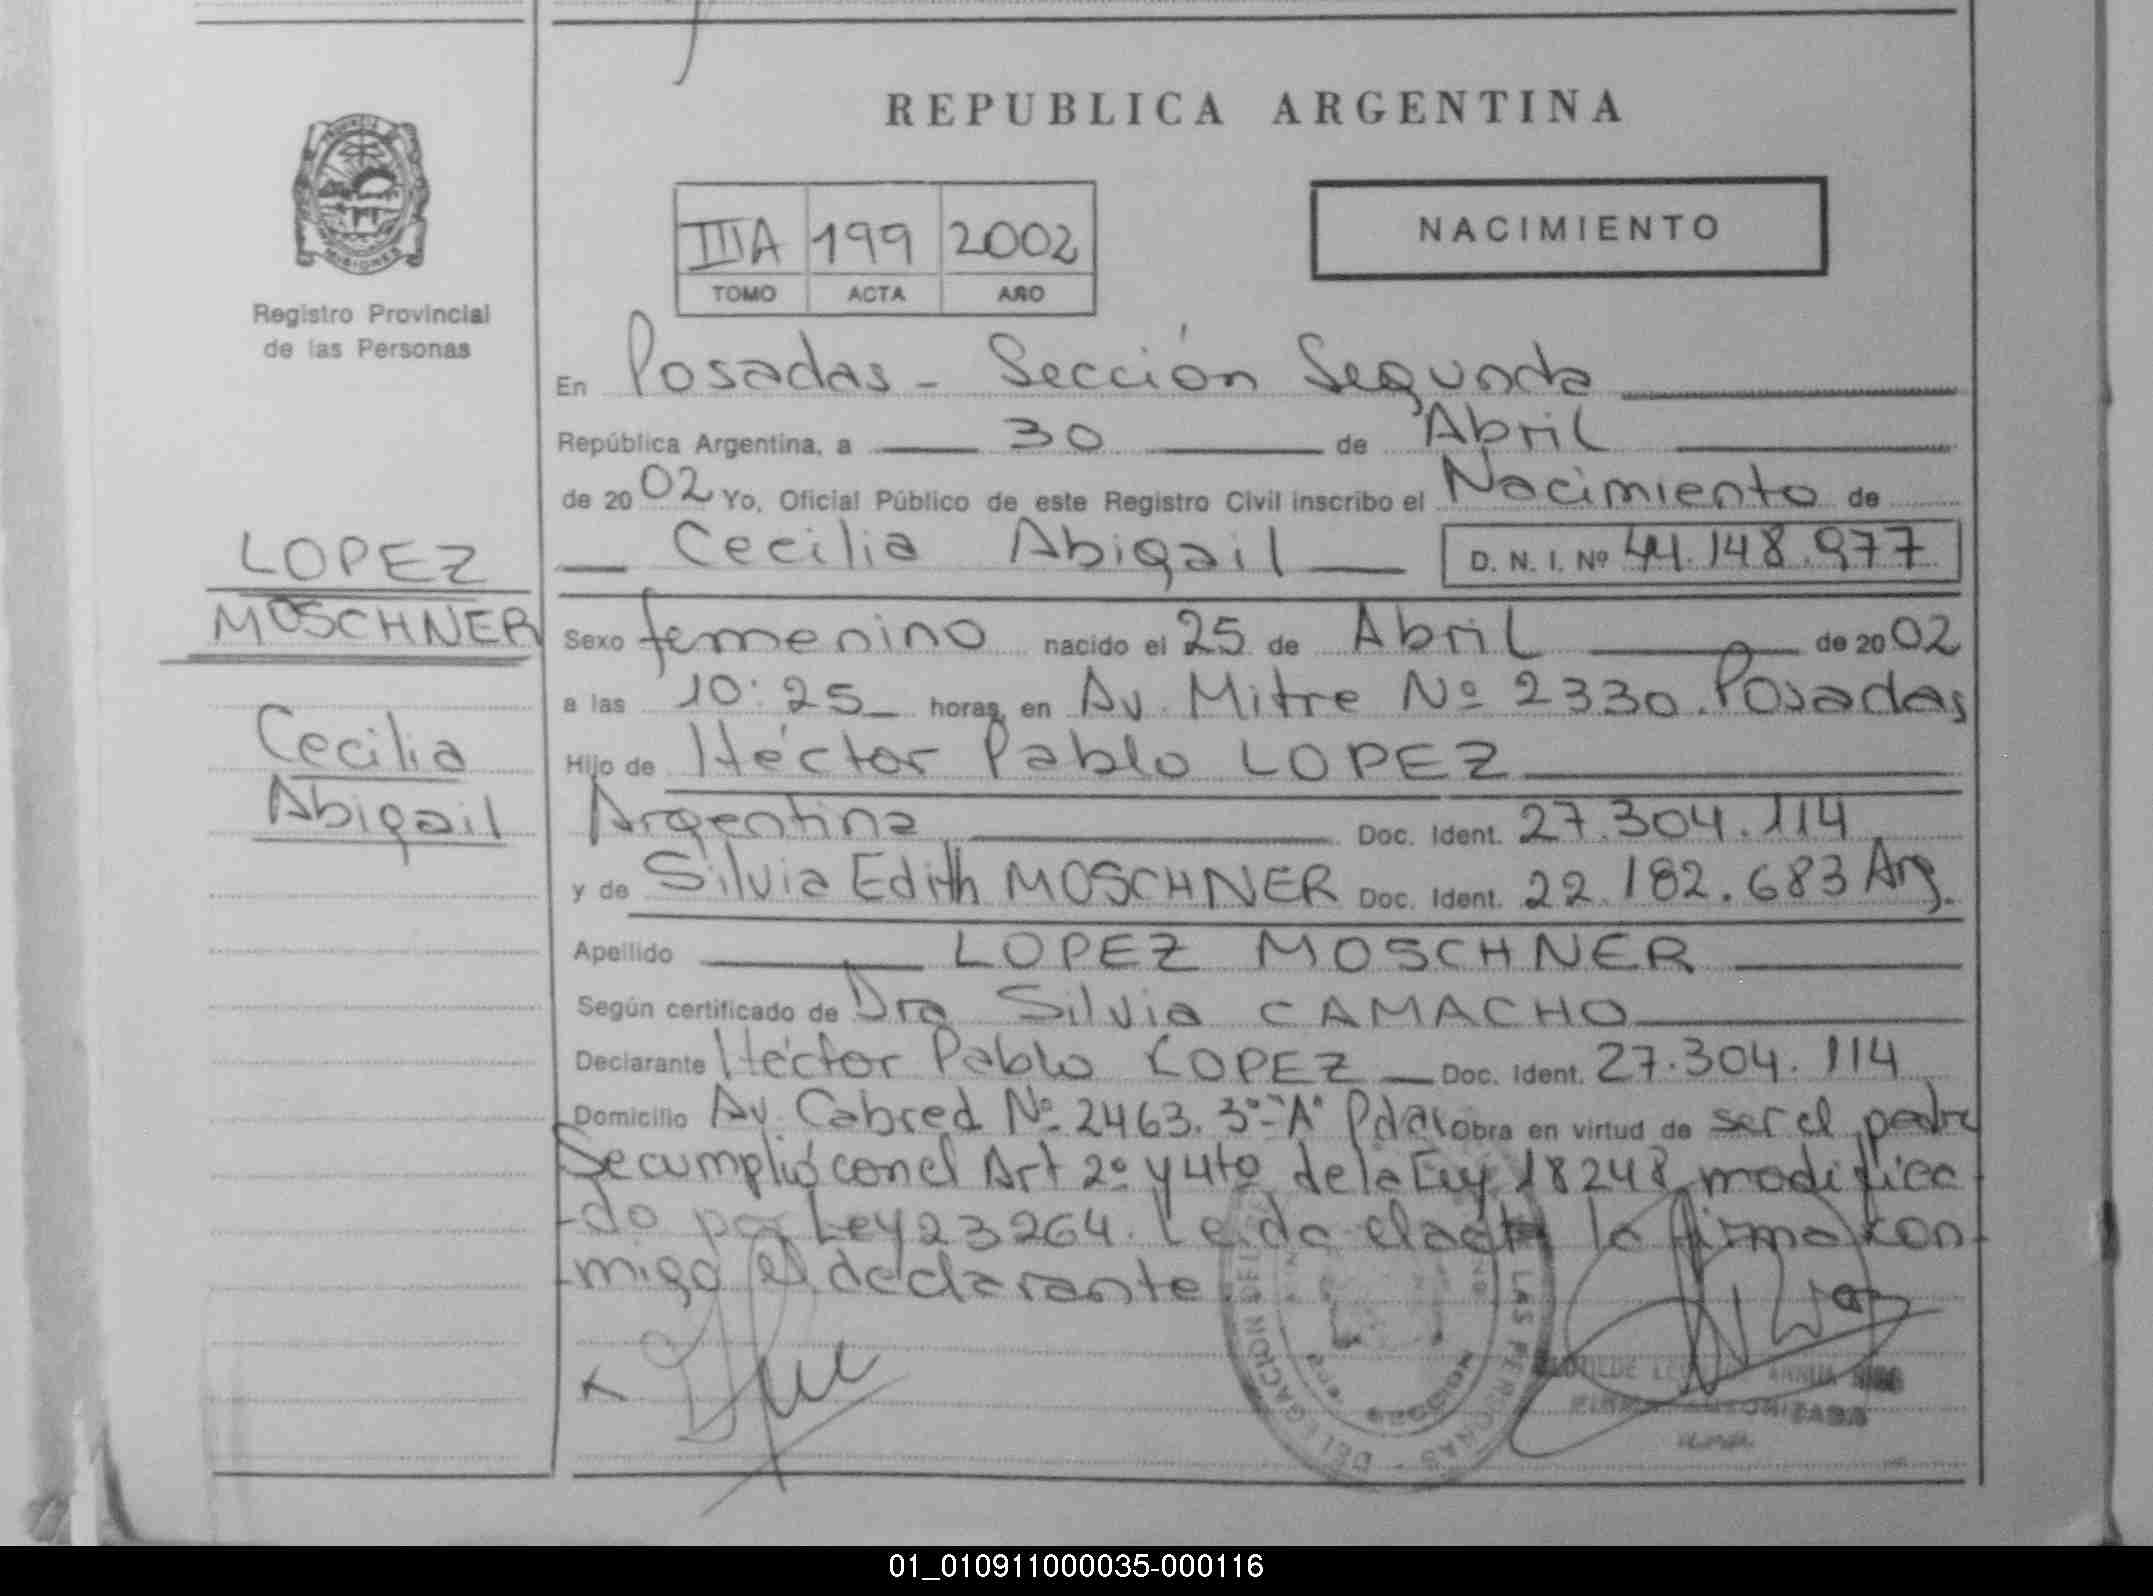 REPUBLICA ARGENTINA
PROVINCIA DE
MISIONES
Registro Provincial
de las Personas
IIIA 199 2002
TOMO ACTA AÑO
NACIMIENTO
En Posadas - Sección Segunda
República Argentina, a 30 de Abril
de 2002 Yo, Oficial Público de este Registro Civil inscribo el Nacimiento de
Cecilia Abigail D. N. I. Nº 44.148.977
LOPEZ
MOSCHNER
Cecilia
Abigail
Sexo femenino nacido el 25 de Abril de 2002
a las 10:25 horas, en Av. Mitre Nº 2330. Posadas
Hijo de Héctor Pablo LOPEZ
Argentina Doc. Ident. 27.304.114
y de Silvia Edith MOSCHNER Doc. Ident. 22.182.683 Arg.
Apellido LOPEZ MOSCHNER
Según certificado de Dra Silvia CAMACHO
Declarante Héctor Pablo LOPEZ Doc. Ident. 27.304.114
Domicilio Av. Cabred Nº 2463. 3º-"A" Pdas obra en virtud de ser el padre
Se cumplió con el Art 2º y 4to de la Ley 18248 modifica
do por Ley 23264. Leida el acta la firma con
migo el declarante.
DELEGACION DE LAS PERSONAS
AUTORIZADA
01_010911000035-000116